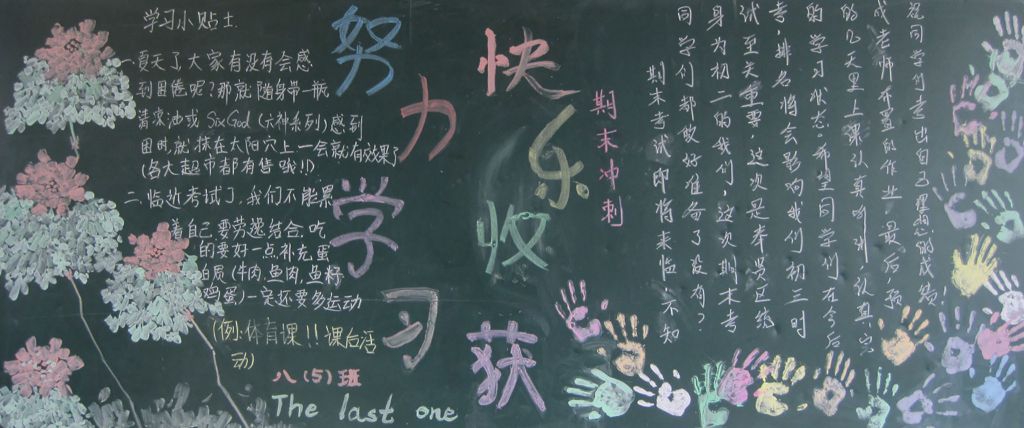 学习小贴士
一夏天了大家有没有会感
到困倦呢?那就随身带一瓶
清凉油或SixGod(六神系列)感到
困时就抹在太阳穴上一会就有效果了
(各大超市都有售哦!!)
二、临近考试了,我们不能累
着自己要劳逸结合.吃
的要好一点.补充蛋
白质(牛肉,鱼肉,鱼籽
鸡蛋)一定还要多运动
(例:体育课!!课后活
动)
八(5)班
The last one
努力学习
快乐收获
期末冲刺
期末考试即将来临不知
同学们都做好准备了没有?
身为初二的我们,这次期末考
试至关重要,这次是本县区统
考,排名将会影响我们初三时
的学习状态.希望同学们在今后
的几天里上课认真听讲,认真完
成老师布置的作业 最后,预
祝同学们考出自己理想的成绩